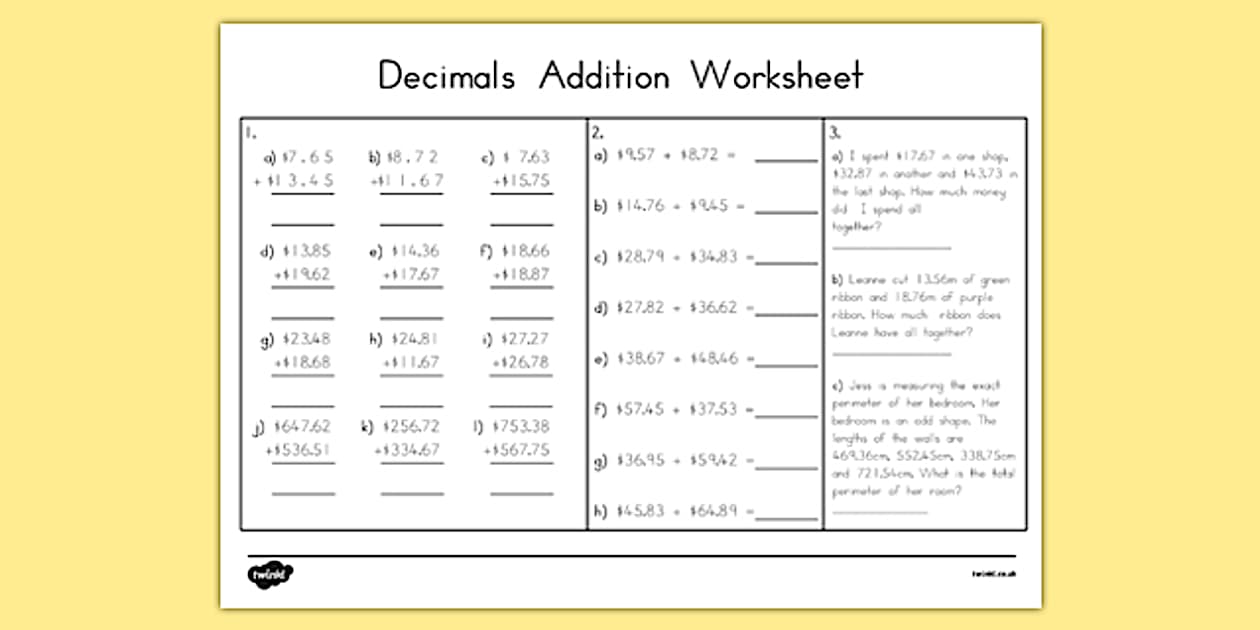 Decimals Addition Worksheet
1.
a) $7.65 b) $8.72 c) $ 7.63
+ $13.45 +$11.67 +$15.75
d) $13.85 e) $14.36 f) $18.66
+$19.62 +$17.67 +$18.87
g) $23.48 h) $24.81 i) $27.27
+$18.68 +$11.67 +$26.78
j) $647.62 k) $256.72 l) $753.38
+$536.51 +$334.67 +$567.75
2.
a) $9.57 + $8.72 =
b) $14.76 + $9.45 =
c) $28.79 + $34.83 =
d) $27.82 + $36.62 =
e) $38.67 + $48.46 =
f) $57.45 + $37.53 =
g) $36.95 + $59.42 =
h) $45.83 + $64.89 =
3.
a) I spent $17.67 in one shop,
$32.87 in another and $43.73 in
the last shop. How much money
did I spend all
together?
b) Leanne cut 13.56m of green
ribbon and 18.76m of purple
ribbon. How much ribbon does
Leanne have all together?
c) Jess is measuring the exact
perimeter of her bedroom. Her
bedroom is an odd shape. The
lengths of the walls are
469.36cm, 552.45cm, 338.75cm
and 721.54cm. What is the total
perimeter of her room?
twinkl
twinkl.co.uk